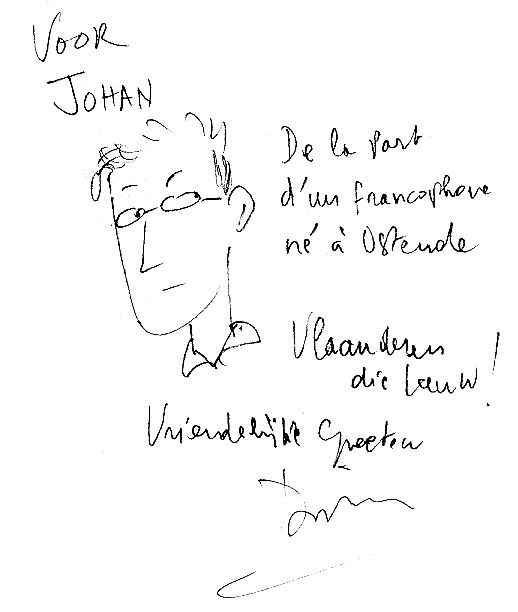 VOOR
JOHAN
De la part
d'un francophone
né à Ostende
Vlaanderen
die Leeuw!
Vriendelijke Groeten